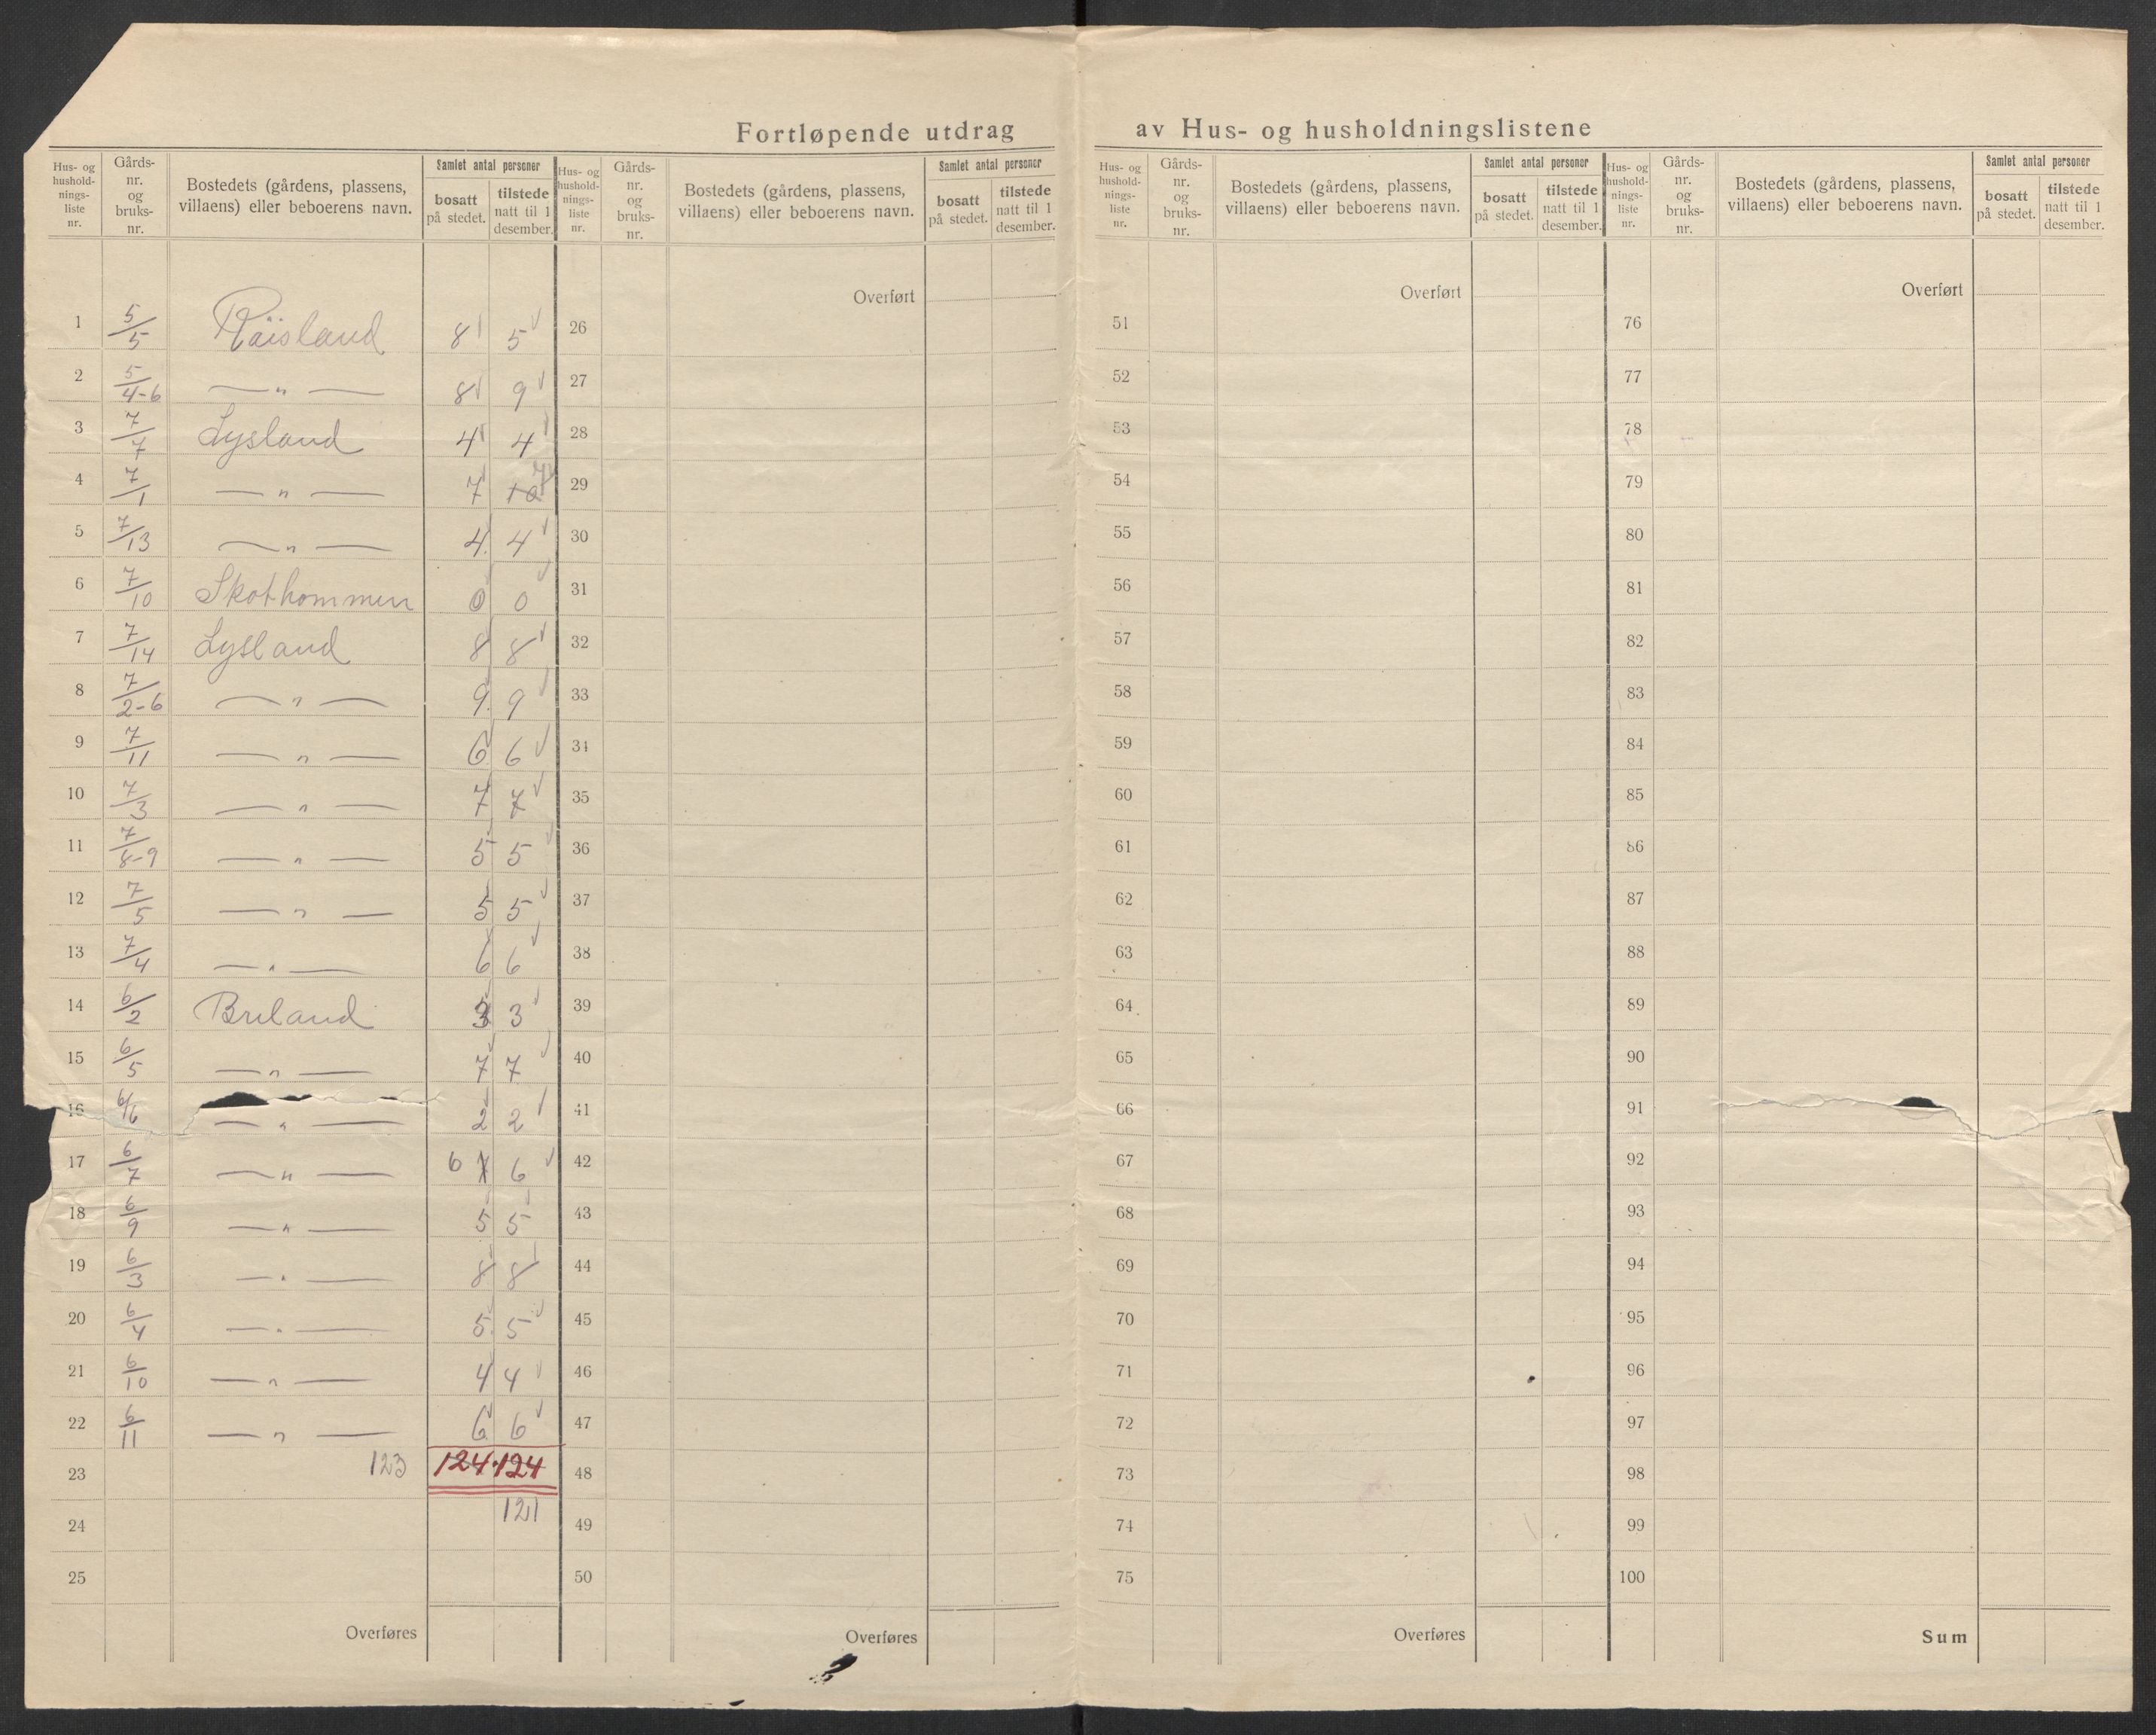 Fortløpende utdrag av Hus- og husholdningslistene
Hus- og hushold-nings-liste nr. Gårds-nr. og bruks-nr. Bostedets (gårdens, plassens, villaens) eller beboerens navn. Samlet antal personer bosatt på stedet. tilstede natt til 1 desember.
Hus- og hushold-nings-liste nr. Gårds-nr. og bruks-nr. Bostedets (gårdens, plassens, villaens) eller beboerens navn. Samlet antal personer bosatt på stedet. tilstede natt til 1 desember.
Hus- og hushold-nings-liste nr. Gårds-nr. og bruks-nr. Bostedets (gårdens, plassens, villaens) eller beboerens navn. Samlet antal personer bosatt på stedet. tilstede natt til 1 desember.
Hus- og hushold-nings-liste nr. Gårds-nr. og bruks-nr. Bostedets (gårdens, plassens, villaens) eller beboerens navn. Samlet antal personer bosatt på stedet. tilstede natt til 1 desember.
Overført Overført Overført
1 5/5 Röisland 8 5 26 51 76
2 5/4-6 — " — 8 9 27 52 77
3 7/7 Lysland 4 4 28 53 78
4 7/1 — " — 7 10 7 29 54 79
5 7/13 — " — 4 4 30 55 80
6 7/10 Skothommen 0 0 31 56 81
7 7/14 Lysland 8 8 32 57 82
8 7/2-6 — " — 9 9 33 58 83
9 7/11 — " — 6 6 34 59 84
10 7/3 — " — 7 7 35 60 85
11 7/8-9 — " — 5 5 36 61 86
12 7/5 — " — 5 5 37 62 87
13 7/4 — " — 6 6 38 63 88
14 6/2 Breland 3 3 39 64 89
15 6/5 — " — 7 7 40 65 90
16 6/6 — " — 2 2 41 66 91
17 6/7 — " — 6 6 42 67 92
18 6/9 — " — 5 5 43 68 93
19 6/3 — " — 8 8 44 69 94
20 6/4 — " — 5 5 45 70 95
21 6/10 — " — 4 4 46 71 96
22 6/11 — " — 6 6 47 72 97
23 123 124 124 48 73 98
24 121 49 74 99
25 50 75 100
Overføres Overføres Overføres Sum